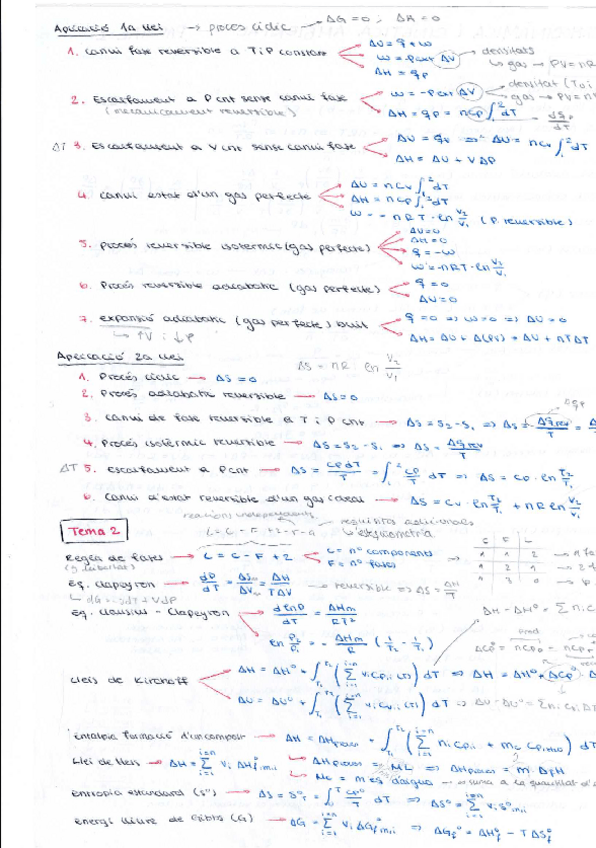 Aplicació 1a llei → procés cíclic → ΔG = 0 ; ΔH = 0
1. Canvi fase reversible a T i P constant
ΔU = q + w
w = -Pext ΔV → densitats
↳ gas → PV = nR
ΔH = qp
2. Escalfament a P cnt sense canvi fase
(mecànicament reversible)
w = -Pext ΔV → densitat (T0 i
gas → PV = n
ΔH = qp = ncp ∫₁² dT
dqp/dT
ΔT 3. Escalfament a V cnt sense canvi fase
ΔU = qv ⇒ ΔU = ncv ∫₁² dT
ΔH = ΔU + VΔP
4. canvi estat d'un gas perfecte
ΔU = ncv ∫₁² dT
ΔH = ncp ∫₁² dT
w = - nRT · ln V₂/V₁ (P. reversible)
5. procés reversible isotèrmic (gas perfecte)
ΔU = 0
ΔH = 0
q = -w
w = -nRT · ln V₂/V₁
6. Procés reversible adiabàtic (gas perfecte)
q = 0
ΔU = 0
7. expansió adiabàtic (gas perfecte) buit
↳ ↑V ; ↓P
q = 0 ⇒ w = 0 ⇒ ΔU = 0
ΔH = ΔU + Δ(PV) = ΔU + nTΔT
Aplicació 2a llei
ΔS = nR ln V₂/V₁
1. Procés cíclic → ΔS = 0
2. Procés adiabàtic reversible → ΔS = 0
3. Canvi de fase reversible a T i P cnt → ΔS = S₂ - S₁ ⇒ ΔS = Δqrev/T =
4. Procés isotèrmic reversible → ΔS = S₂ - S₁ ⇒ ΔS = Δqrev/T
ΔT 5. Escalfament a P cnt → ΔS = CP dT/T = ∫₁² CP/T dT ⇒ ΔS = CP · ln T₂/T₁
6. Canvi d'estat reversible d'un gas → ΔS = Cv · ln T₂/T₁ + nR ln V₂/V₁
reacions independents
Tema 2
L = C - F + 2 - r - a → requisits addicionals
↳ estequiometria
Regla de fases → L = C - F + 2
C = nº components
F = nº fases
C F L
1 1 2
1 2 1
1 3 0
eq. Clapeyron → dP/dT = ΔS/ΔV = ΔH/TΔV → reversible ⇒ ΔS = ΔH/T
↳ dG = -SdT + VdP
eq. Clausius - Clapeyron
d lnP/dT = ΔHm/RT²
ln P₂/P₁ = - ΔHm/R (1/T₂ - 1/T₁)
ΔH - ΔHº = Σ ni C
prod
ΔCPº = nCPP - nCPr
Lleis de Kirchoff
ΔH = ΔHº + ∫T₁T₂ (Σ vi CP,i (T)) dT ⇒ ΔH = ΔHº + ΔCPº Δ
ΔU = ΔUº + ∫T₁T₂ (Σ vi Cv,i (T)) dT ⇒ ΔU - ΔUº = Σ ni CP,i ΔT
Entalpia formació d'un compost → ΔH = ΔHprocés + ∫T₁T₂ (Σ ni CP,i + mc CP,H₂O) dT
Llei de Hess → ΔH = Σ vi ΔHºf,m,i
↳ ΔHprocés = ML ⇒ ΔHprocés = m · ΔfH
↳ Mc = massa d'aigua → suma a la quantitat d'a
Entropia estàndard (Sº) → ΔS = SºT = ∫₀T CPº/T dT ⇒ ΔSº = Σ vi Sºm,i
Energi lliure de Gibbs (G) → ΔG = Σ vi ΔGºf,m,i ⇒ ΔGfº = ΔHfº - TΔSfº